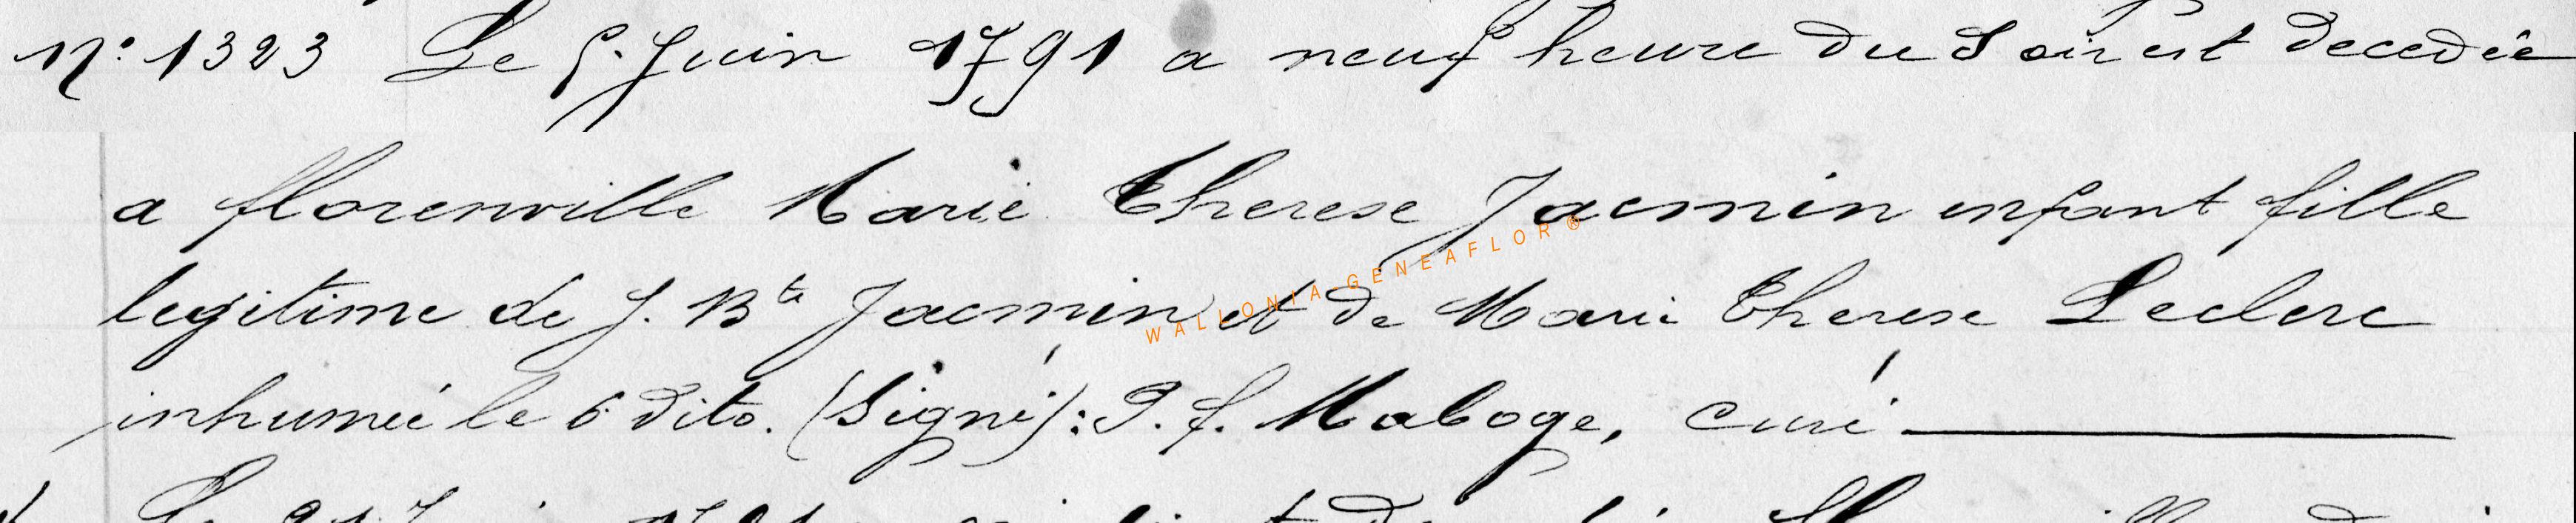 N° 1323 Le 5 Juin 1791 a neuf heure du Soir est decedée
a florenville Marie Therese Jacmin enfant fille
legitime de J. Bte Jacmin et de Marie Therese Leclerc
WALLONIA-GENEAFLOR®
inhumée le 6 dito. (Signé): P. f. Maboge, curé